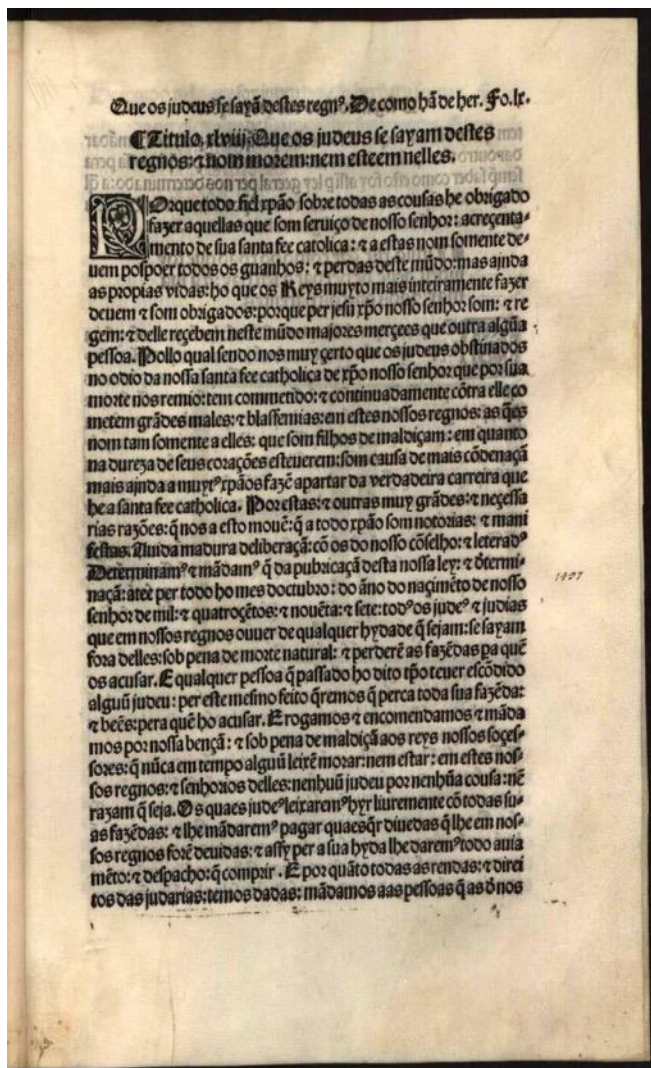 Que os judeus se sayã destes regnꝰ. De como hã de her. Fo. lx.
¶ Titulo. xlviij. Que os judeus se sayam destes
regnos: ⁊ nom morem: nem esteem nelles.
POrque todo fiel xpão sobre todas as cousas he obrigado
fazer aquellas que som seruiço de nosso senhor: acreçenta-
mento de sua santa fee catolica: ⁊ a estas nom somente de-
uem pospoer todos os guanhos: ⁊ perdas deste mũdo: mas ajnda
as propias vidas: ho que os Reys muyto mais inteiramente fazer
deuem ⁊ som obrigados: porque per jesu xp̃o nosso senhor som: ⁊ re
gem: ⁊ delle reçebem neste mũdo majores merçees que outra algũa
pessoa. Pollo qual sendo nos muy çerto que os judeus obstinados
no odio da nossa santa fee catholica de xp̃o nosso senhor que por sua
morte nos remio: tem commetido: ⁊ continuadamente cõtra elle co
metem grãdes males: ⁊ blasfemias: em estes nossos regnos: as q̃es
nom tam somente a elles: que som filhos de maldiçam: em quanto
na dureza de seus corações esteuerem: som causa de mais cõdenaçã
mais ajnda a muytꝰ xpãos fazẽ apartar da verdadeira carreira que
he a santa fee catholica. Por estas: ⁊ outras muy grãdes: ⁊ neçessa
rias razões: q̃ nos a esto mouẽ: q̃ a todo xpão som notorias: ⁊ mani
festas. Auida madura deliberaçã: cõ os do nosso cõselho: ⁊ leteradꝰ
Determinamꝰ ⁊ mãdamꝰ q̃ da pubricaçã desta nossa ley: ⁊ d̃termi-
naçã: atee per todo ho mes doctubro: do ãno do naçimẽto de nosso
senhor de mil: ⁊ quatroçẽtos: ⁊ nouẽta: ⁊ sete: todꝰ os judeꝰ ⁊ judias
que em nossos regnos ouuer de qualquer hydade q̃ sejam: se sayam
fora delles: sob pena de morte natural: ⁊ perderẽ as fazẽdas pa quẽ
os acusar. E qualquer pessoa q̃ passado ho dito tp̃o teuer escõdido
alguũ judeu: per este mesmo feito q̃remos q̃ perca toda sua fazẽda:
⁊ beẽs: pera quẽ ho acusar. E rogamos ⁊ encomendamos ⁊ mãda
mos por nossa bençã: ⁊ sob pena de maldiçã aos reys nossos soçes-
sores: q̃ nũca em tempo alguũ leixẽ morar: nem estar: em estes nos-
sos regnos: ⁊ senhorios delles: nenhuũ judeu por nenhũa cousa: nẽ
razam q̃ seja. Os quaes judeꝰ leixaremꝰ hyr liuremente cõ todas su-
as fazẽdas: ⁊ lhe mãdaremꝰ pagar quaesq̃r diuedas q̃ lhe em nos-
sos regnos forẽ deuidas: ⁊ assy per a sua hyda lhe daremꝰ todo auia
mẽto: ⁊ despacho: q̃ comprir. E por quãto todas as rendas: ⁊ direi
tos das judarias: temos dadas: mãdamos aas pessoas q̃ as d̃ nos
1497